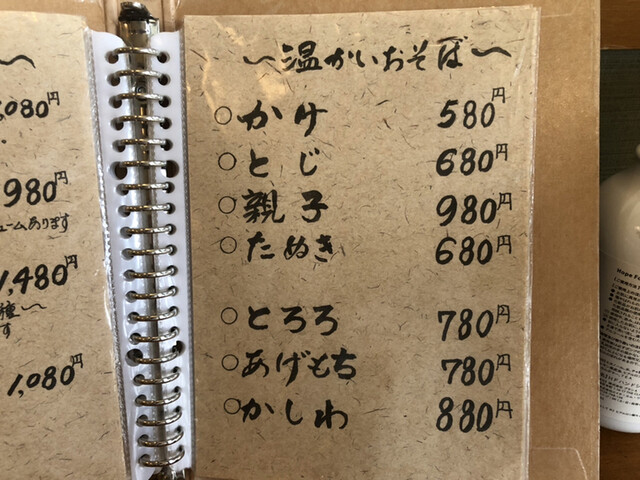 ,080円
980円
ュームあります
1,480円
種〜
す
1,080円
〜温かいおそば〜
○かけ 580円
○とじ 680円
○親子 980円
○たぬき 680円
○とろろ 780円
○あげもち 780円
○かしわ 880円